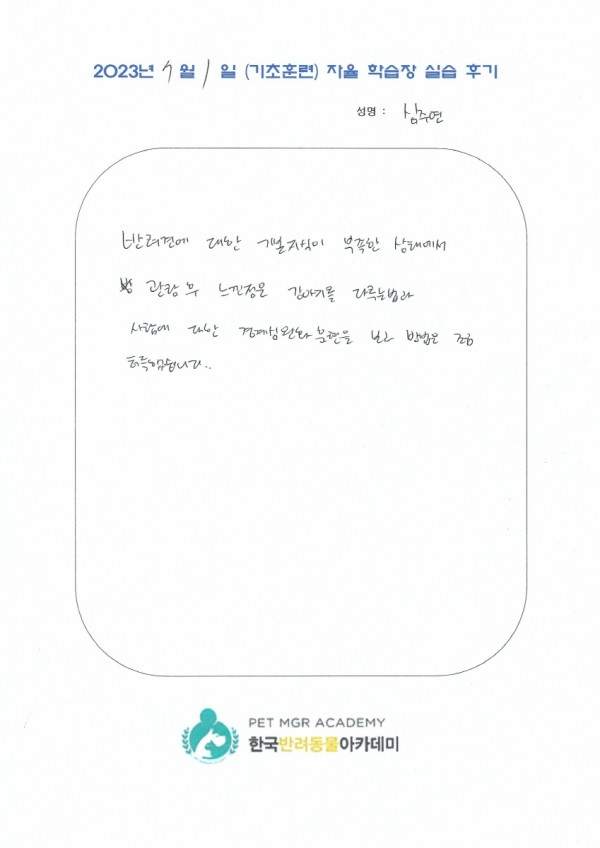 2023년 9월 1일 (기초훈련) 자율 학습장 실습 후기
성명 : 심주연
반려견에 대한 개별지식이 부족한 상태에서
관람 후 느낀점은 강아지를 다루는법과
사람에 대한 경계심완화 훈련을 보고 방법을 조금
터득했습니다..
PET MGR ACADEMY
한국반려동물아카데미